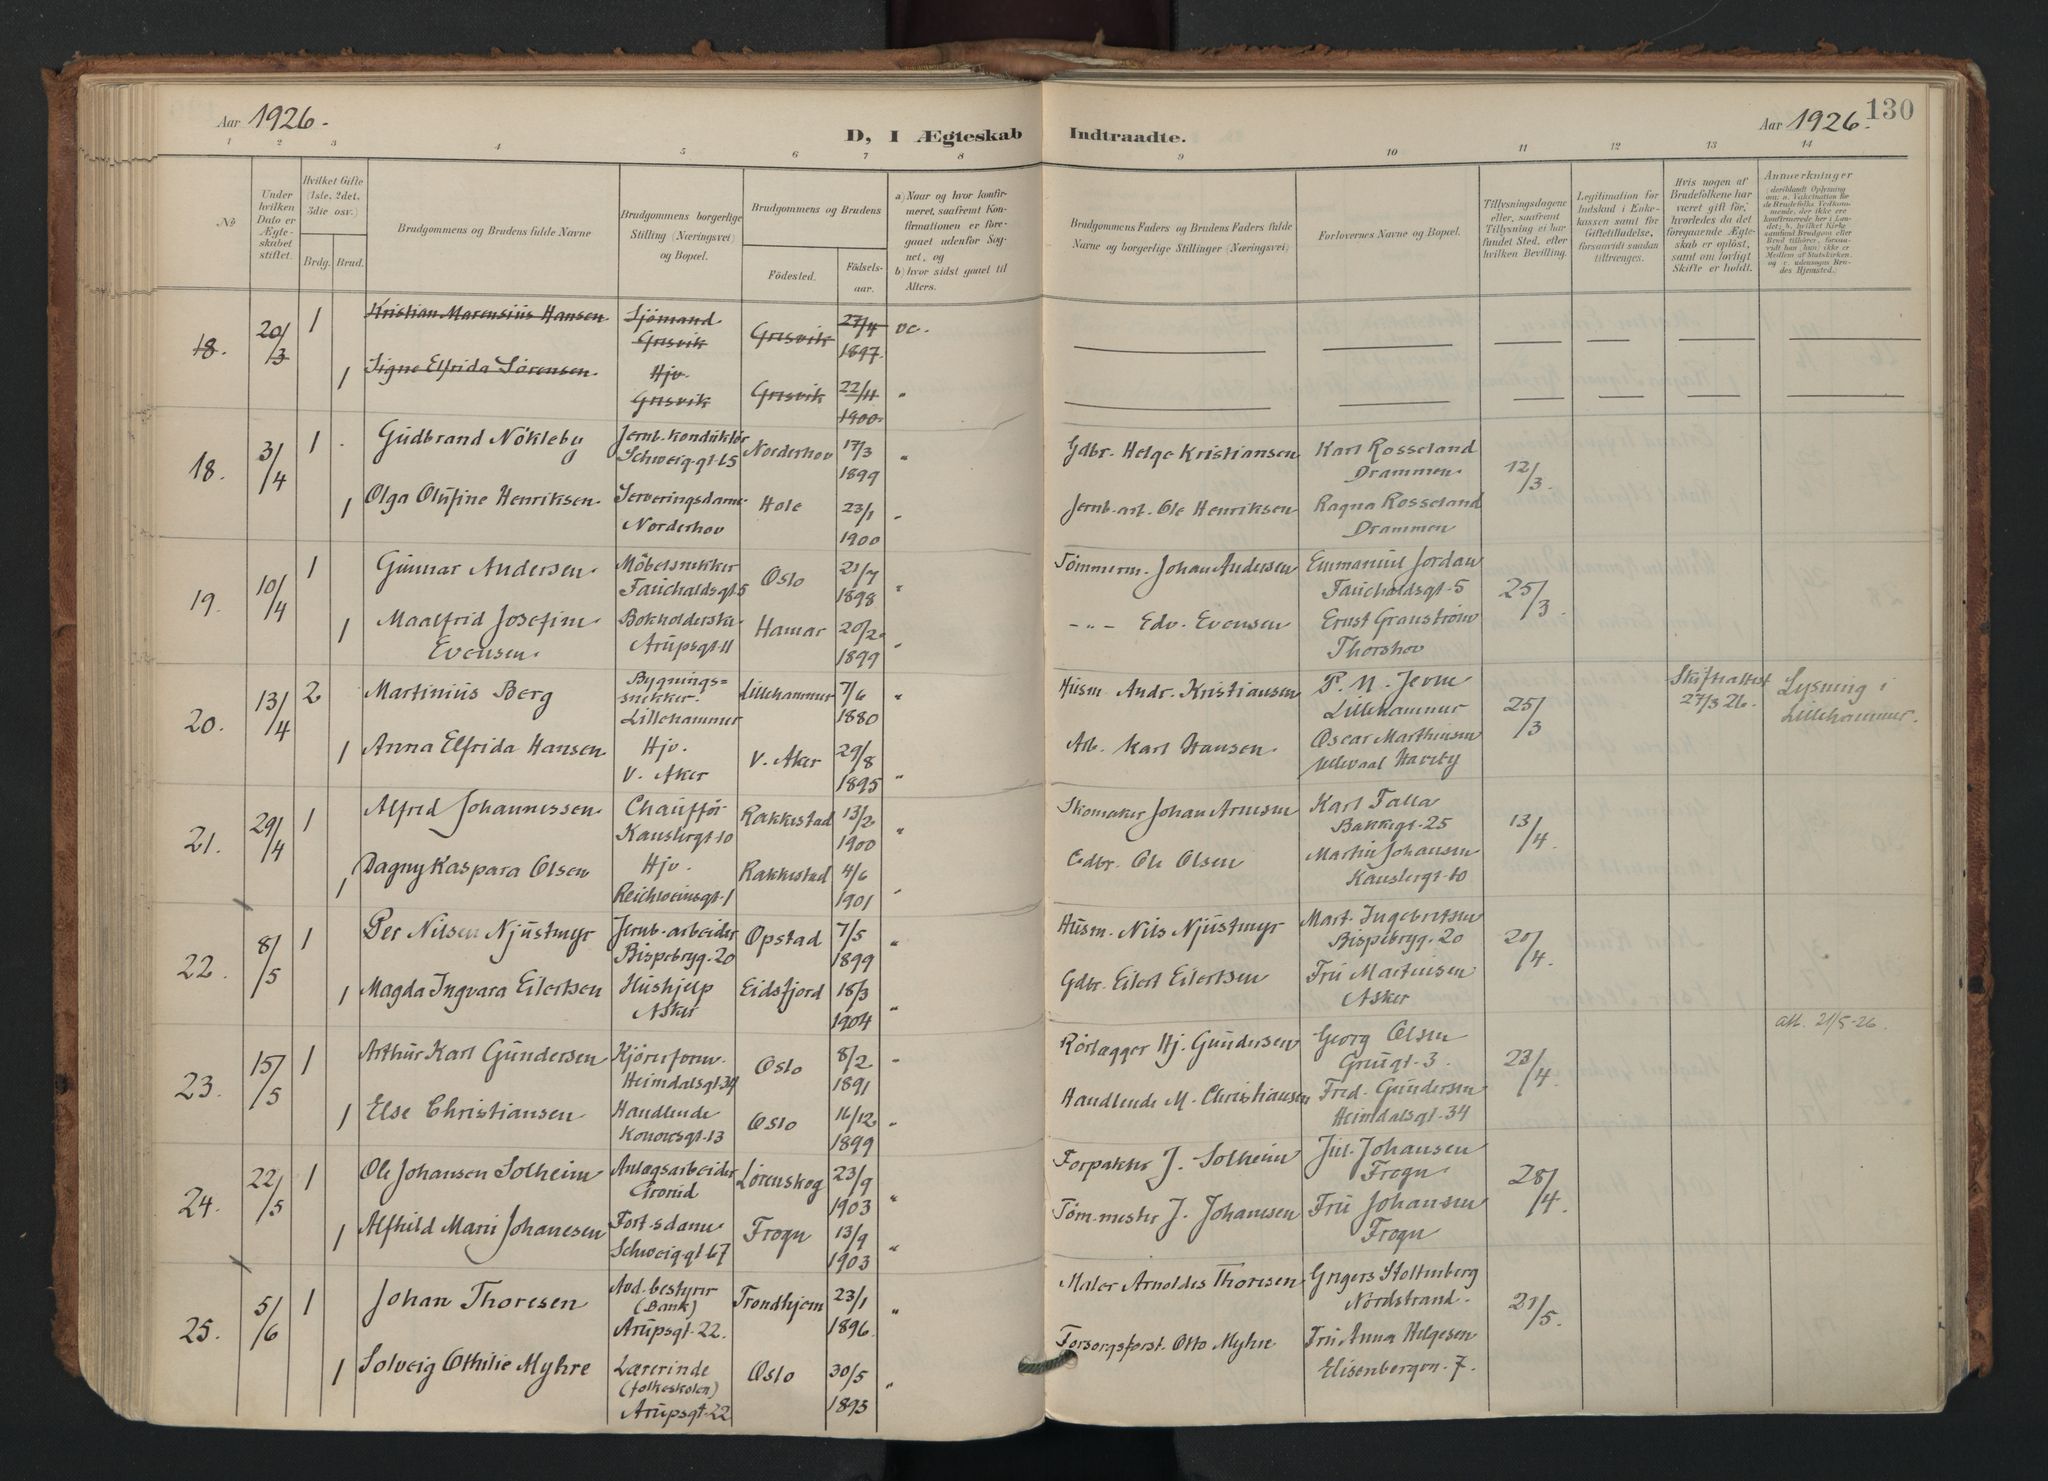 Aar 1926.
D, I Ægteskab
Indtraadte.
Aar 1926.
130
1 2 3 4 5 6 7 8 9 10 11 12 13 14
No
Under hvilken Dato er Ægteskabet stiftet.
Hvilket Gifte (1ste, 2det, 3die osv.)
Brdg. Brud.
Brudgommens og Brudens fulde Navne
Brudgommens borgerlige Stilling (Næringsvei) og Bopæl.
Brudgommens og Brudens
Fødested. Fødselsaar.
a) Naar og hvor konfirmeret, saafremt Konfirmationen er foregaaet udenfor Sognet, og
b) hvor sidst gaaet til Alters.
Brudgommens Faders og Brudens Faders fulde Navne og borgerlige Stillinger (Næringsvei)
Forlovernes Navne og Bopæl.
Tillysningsdagene eller, saafremt Tillysning ei har fundet Sted, efter hvilken Bevilling.
Legitimation for Indskud i Enkekassen samt for Giftetilladelse, forsaavidt saadan tiltrænges.
Hvis nogen af Brudefolkene har været gift før, hvorledes da det foregaaende Ægteskab er opløst, samt om lovligt Skifte er holdt.
Anmerkninger
18. 20/3 1 Kristian Marensius Hansen Sjömand Grisvik Grisvik 27/4 1897 vc.
1 Signe Elfrida Sørensen Hjv. Grisvik Grisvik 22/11 1900 "
18. 3/4 1 Gudbrand Nökleby Jernb. konduktör Schweig.gt. 15 Norderhov 17/3 1899 " Gdbr. Helge Kristiansen Karl Rosseland Drammen 12/3.
1 Olga Olufine Henriksen Serveringsdame Norderhov Hole 23/1 1900 " Jernb. arb. Ole Henriksen Ragna Rosseland Drammen
19. 10/4 1 Gunnar Andersen Möbelsnekker Fauchaldsgt. 5 Oslo 21/7 1898 " Tömmerm. Johan Andersen Emmanuel Jordan Fauchaldsgt. 5 25/3
1 Maalfrid Josefine Evensen. Bokholderske Arupsgt. 11 Hamar 20/2 1899 " -"- Edv. Evensen Ernst Granström Thorshov
20. 13/4 2 Martinius Berg Bygningssnekker. Lillehammer Lillehammer 7/6 1880 " Husm. Andr. Kristiansen P. M. Lillehammer 25/3 Skifteattest 27/3 26. Lysning i Lillehammer.
1 Anna Elfrida Hansen Hjv. V. Aker V. Aker 29/8 1895 " Arb. Karl Hansen. Oscar Marthinsen
21. 29/4 1 Alfred Johannessen Chauffør Kanslergt. 10 Rakkestad 13/2 1900 " Skomaker Johan Arnesen Karl Talla Bakkegt. 25 13/4
1 Dagny Kaspara Olsen Hjv. Reichweinsgt. 1 Rakkestad 4/6 1901 " Gdbr. Ole Olsen Martin Johansen Kanslergt. 10
22. 8/5 1 Per Nilsen Njustmyr Jernb. arbeider Bispebryg. 20 Opstad 7/5 1899 " Husm. Nils Njustmyr Mart. Ingebretsen Bispebryg. 20 20/4.
1 Magda Ingvara Eilertsen Hushjelp Asker Eidsfjord 18/3 1904 " Gdbr. Eilert Eilertsen Fru Martinsen Asker
23. 15/5 1 Arthur Karl Gundersen Kjörerforv. Heimdalsgt. 34 Oslo 8/2 1891 " Rörlægger Hj. Gundersen Georg Olsen Gruegt. 3. 23/4 att. 21/5-26.
1 Else Christiansen Handlende Konowsgt. 13 Oslo 16/12 1899 " Handlende M. Christiansen Fred. Gundersen Heimdalsgt. 34
24. 22/5 1 Ole Johansen Solheim Anlægsarbeider Grorud Lørenskog 23/9 1903 " Forpakter J. Solheim Jul. Johansen Frogn 28/4.
1 Alfhild Marie Johanesen Fort.s dame Schweig.gt. 67 Frogn 13/9 1903 " Töm.mester J. Johanesen Fru Johansen Frogn
25. 5/6 1 Johan Thoresen Avd. bestyrer (Bank) Arupsgt. 22. Trondhjem 23/1 1896. " Maler Arnoldes Thoresen Grigers Stoltenberg Nordstrand. 21/5.
1 Solveig Othilie Myhre Lærerinde (folkeskolen) Arupsgt. 22 Oslo 30/5 1893 " Forsorgsforst. Otto Myhre Fru Anna Helgesen Elisenbergvn. 7.